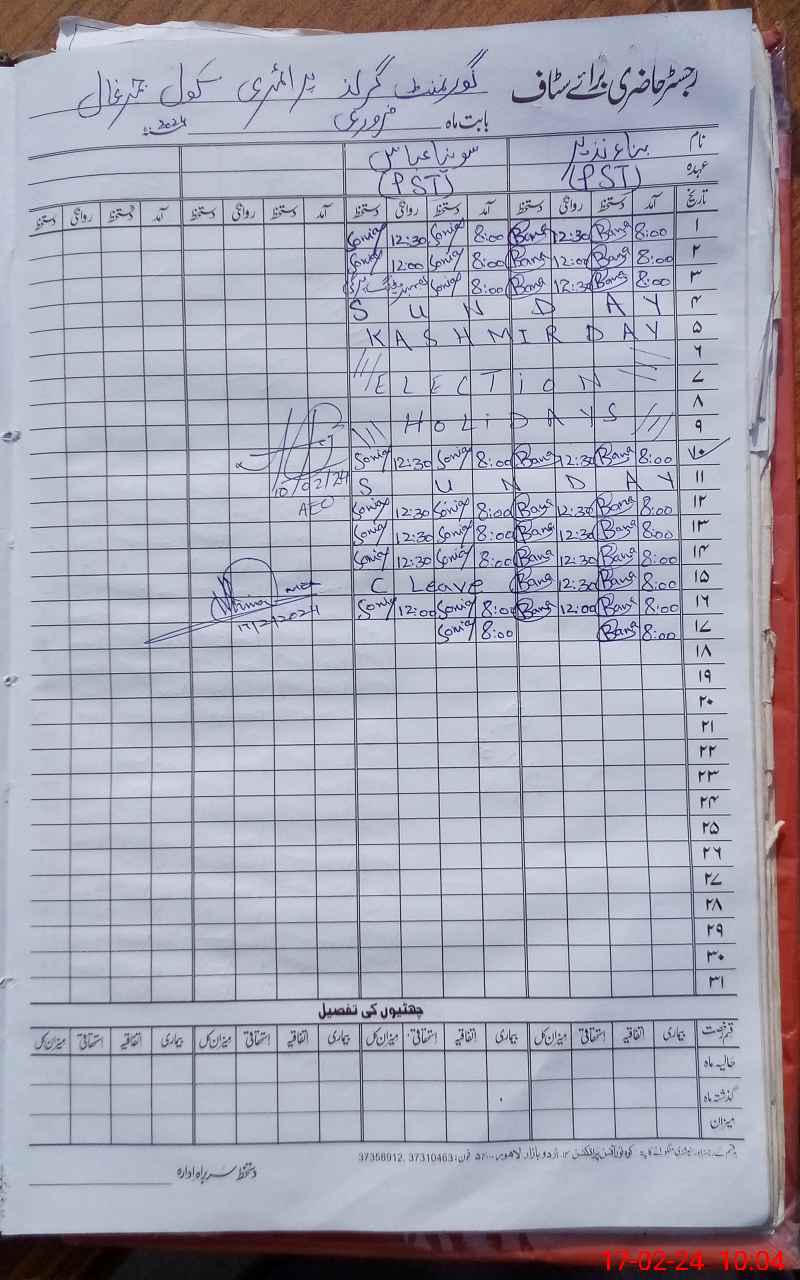 رجسٹر حاضری برائے سٹاف گورنمنٹ گرلز پرائمری سکول
بابت ماہ فروری 2024ء
نام بناء نذیر سونیا عباس
عہدہ (PST) (PST)
تاریخ آمد دستخط روانگی دستخط آمد دستخط روانگی دستخط آمد دستخط روانگی دستخط آمد دستخط روانگی دستخط
۱ 8:00 Bana 12:30 Bana 8:00 Sonia 12:30 Sonia
۲ 8:00 Bana 12:00 Bana 8:00 Sonia 12:00 Sonia
۳ 8:00 Bana 12:30 Bana 8:00 Sonia
۴ S U N D A Y
۵ K A S H M I R D A Y
۶
۷ E L E C T i O N
۸
۹ H O L i D A Y S
۱۰ 8:00 Bana 12:30 Bana 8:00 Sonia 12:30 Sonia
10/02/24
۱۱ S U N D A Y
AEO
۱۲ 8:00 Bana 12:30 Bana 8:00 Sonia 12:30 Sonia
۱۳ 8:00 Bana 12:30 Bana 8:00 Sonia 12:30 Sonia
۱۴ 8:00 Bana 12:30 Bana 8:00 Sonia 12:30 Sonia
۱۵ 8:00 Bana 12:30 Bana C Leave
۱۶ 8:00 Bana 12:00 Bana 8:00 Sonia 12:00 Sonia
17/2/2024
۱۷ 8:00 Bana 8:00 Sonia
۱۸
۱۹
۲۰
۲۱
۲۲
۲۳
۲۴
۲۵
۲۶
۲۷
۲۸
۲۹
۳۰
۳۱
چھٹیوں کی تفصیل
قسم رخصت بیماری اتفاقیہ استحقاقی میزان کل بیماری اتفاقیہ استحقاقی میزان کل بیماری اتفاقیہ استحقاقی میزان کل بیماری اتفاقیہ استحقاقی میزان کل
حالیہ ماہ
گذشتہ ماہ
میزان
اردو بازار لاہور فون: 37310463, 37356912
دستخط سربراہ ادارہ
17-02-24 10:04